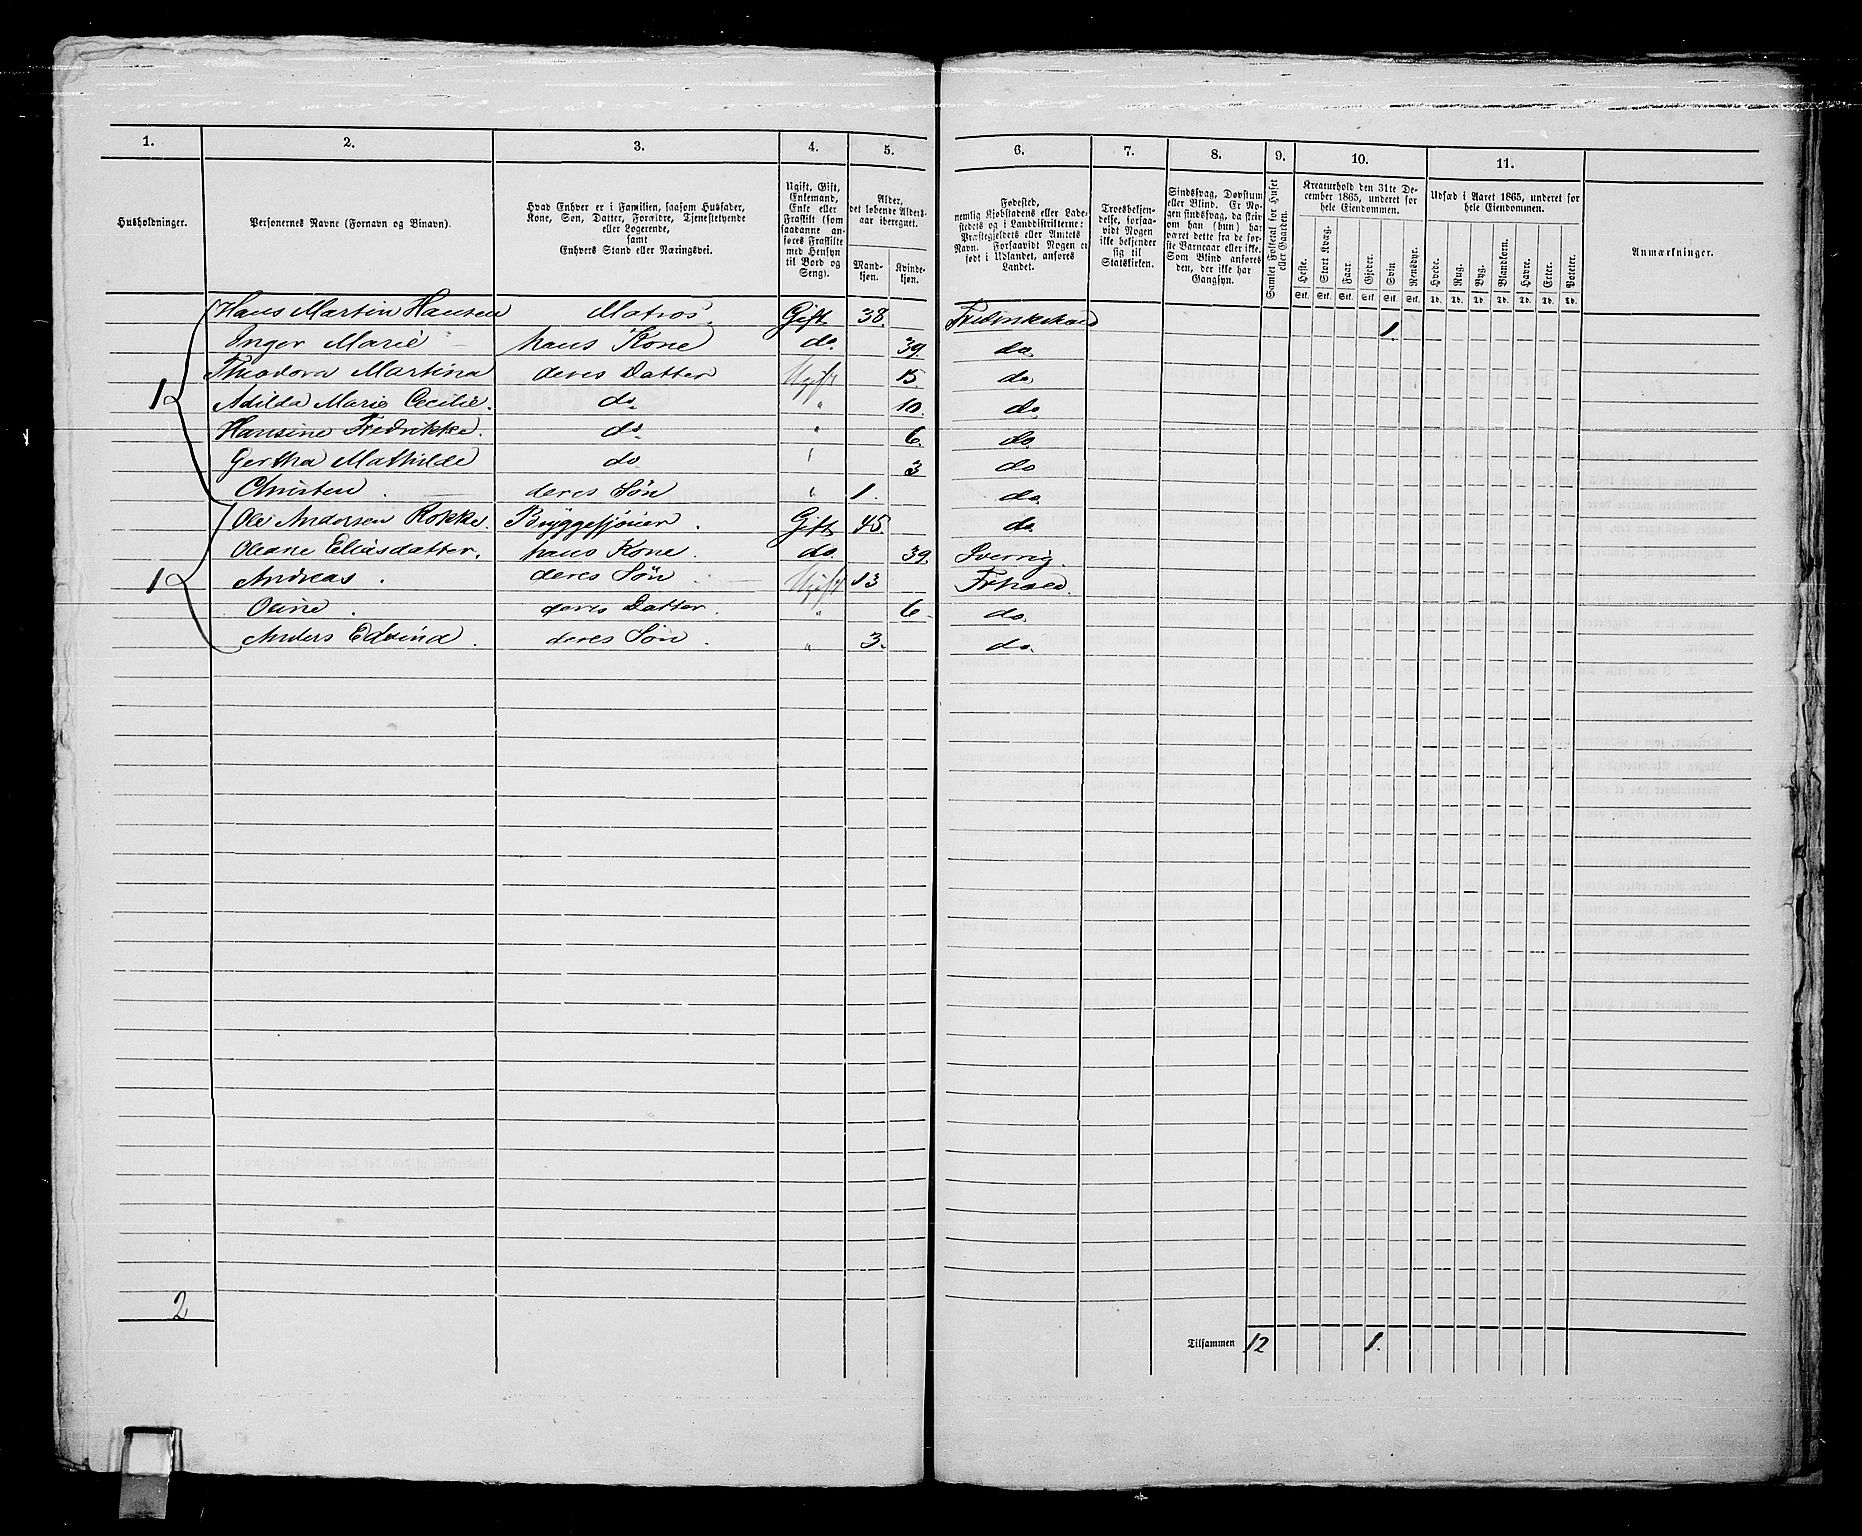 1. 2. 3. 4. 5. 6. 7. 8. 9. 10. 11.
Husholdninger.
Personernes Navne (Fornavn og Binavn).
Hvad Enhver er i Familien, saasom Husfader,
Kone, Søn, Datter, Forældre, Tjenestetyende
eller Logerende,
samt
Enhvers Stand eller Næringsvei.
Ugift, Gift,
Enkemand,
Enke eller
Fraskilt (som
saadanne an-
føres Fraskilte
med Hensyn
til Bord og
Seng).
Alder,
det løbende Alders-
aar iberegnet.
Mand-
kjøn.
Kvinde-
kjøn.
Fødested,
nemlig Kjøbstadens eller Lade-
stedets og i Landdistrikterne:
Præstegjeldets eller Amtets
Navn. Forsaavidt Nogen er
født i Udlandet, anføres
Landet.
Troesbekjen-
delse, forsaa-
vidt Nogen
ikke bekjender
sig til
Statskirken.
Sindssvag, Døvstum
eller Blind. Er No-
gen sindssvag, da skriv
om han (hun) har
været dette fra de før-
ste Barneaar eller ikke.
Som Blind anføres
den, der ikke har
Gangsyn.
Samlet Folketal for Huset
eller Gaarden.
Kreaturhold den 31te De-
cember 1865, underet for
hele Eiendommen.
Heste. Stort Kvæg. Faar. Gjeder. Svin Rensdyr.
Stk. Stk. Stk. Stk. Stk. Stk.
Udsæd i Aaret 1865, underet for
hele Eiendommen.
Hvede. Rug. Byg. Blandkorn. Havre. Erter. Poteter.
Td. Td. Td. Td. Td. Td. Td.
Anmærkninger.
Hans Martin Hansen Matros. Gift 38. Fredrikshald 1.
Inger Marie hans Kone do. 39. do.
Theodora Martina deres Datter Ugift 15 do.
1 Adilda Marie Cecilie. do. " 10. do
Hansine Fredrikke. do. " 6. do
Gertha Mathilde do " 3 do
Christen. deres Søn " 1. do.
Ole Andersen Rokke. Bryggesjouer. Gift 45. do.
Oleane Eliasdatter. hans Kone. do. 39. Sverrig.
1 Andreas. deres Søn Ugift 13 Frhald.
Oline. deres Datter. " 6. do.
Anders Edvind. deres Søn. " 3. do.
2
Tilsammen 12 1.